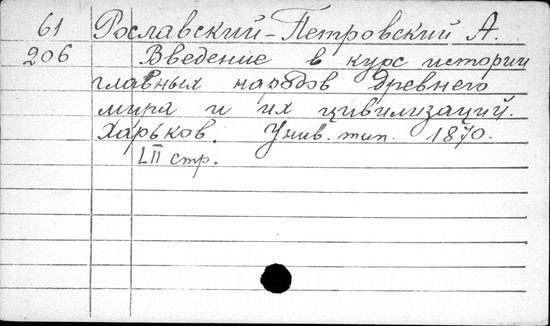 61 Рославский-Петровский А.
206 Введение в курс истории
главных народов древнего
мира и их цивилизаций.
Харьков. Унив. тип. 1870.
LII стр.